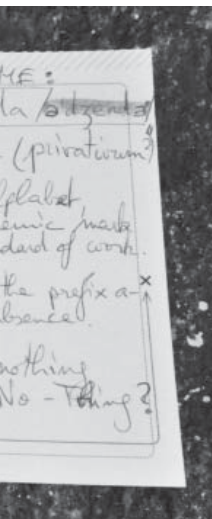 ME:
da / adzenda"
(privativum?)
alphabet
emic mark
dard of work.
the prefix a-
bsence.
nothing
No-Thing?